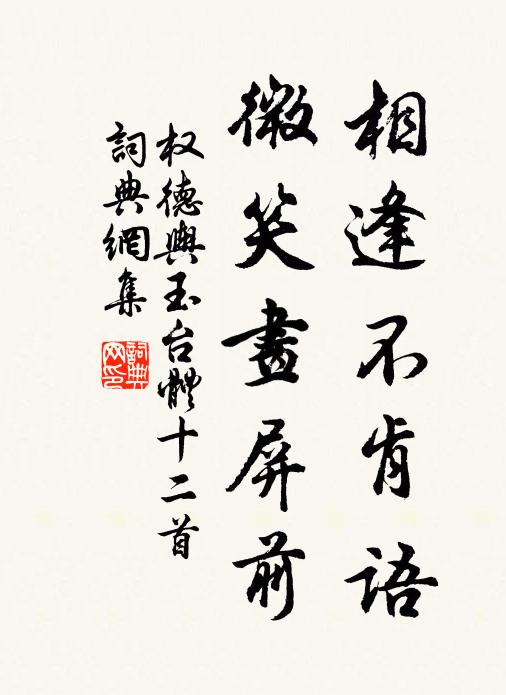 相逢不肯语
微笑畫屏前
权德輿玉台體十二首
詞典網集
詞典網印